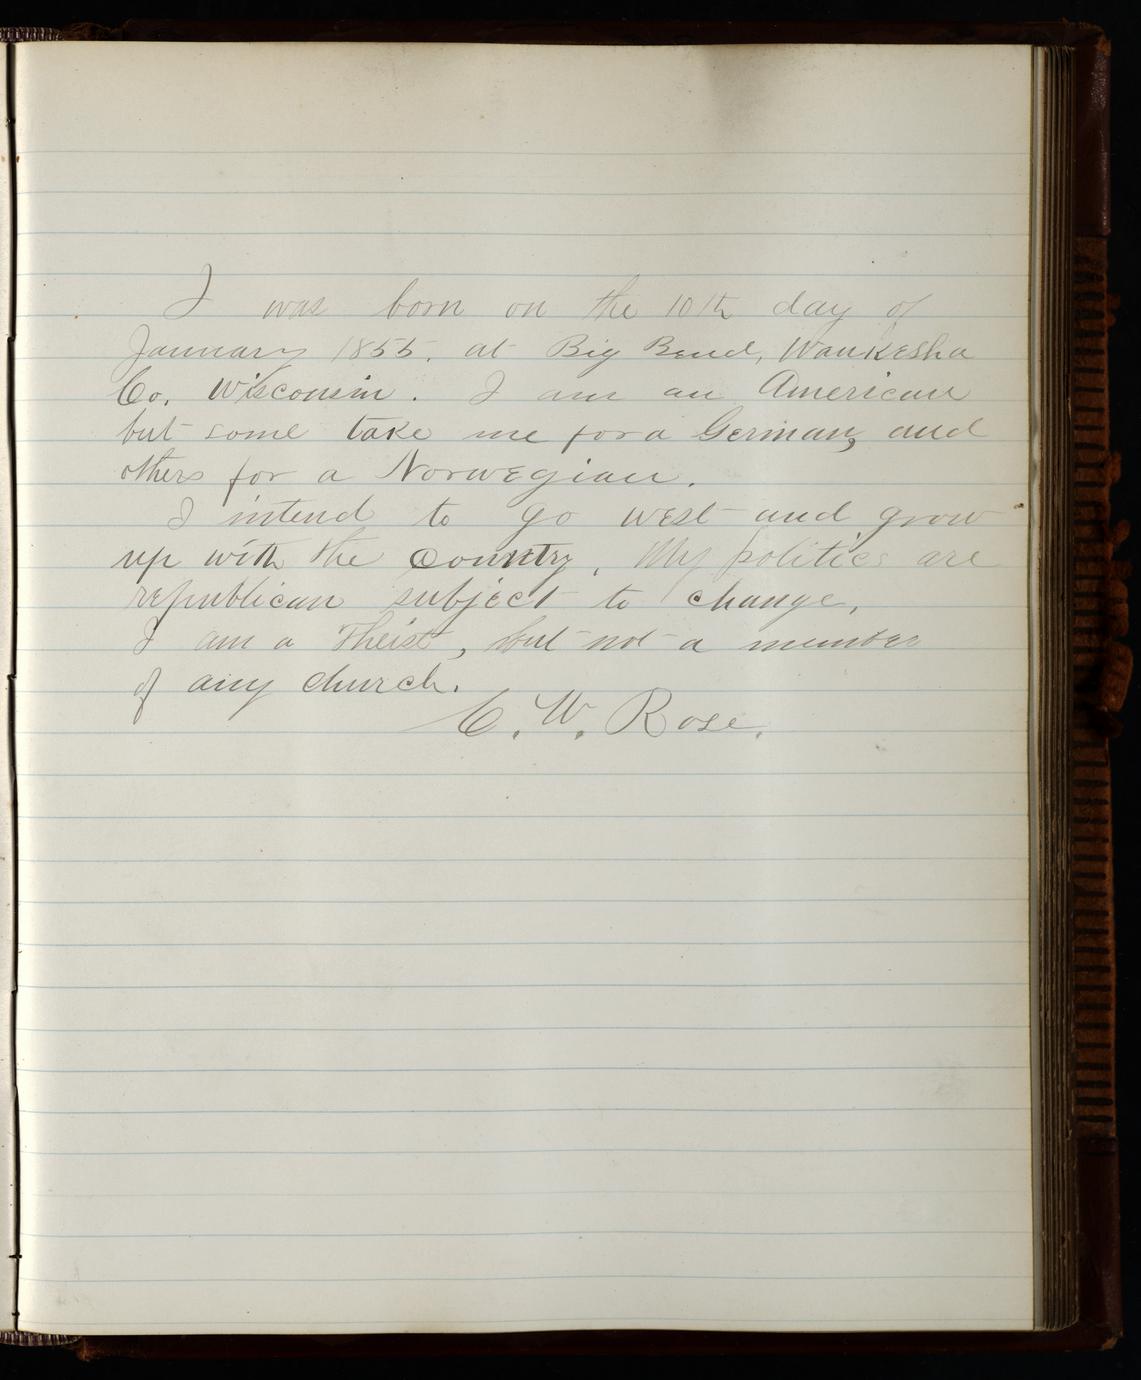 I was born on the 10th day of
January 1855. at Big Bend, Waukesha
Co. Wisconsin. I am an American
but some take me for a German, and
others for a Norwegian.
I intend to go west and grow
up with the country. My politics are
republican subject to change.
I am a Theist, but not a member
of any church.
C. W. Rose.